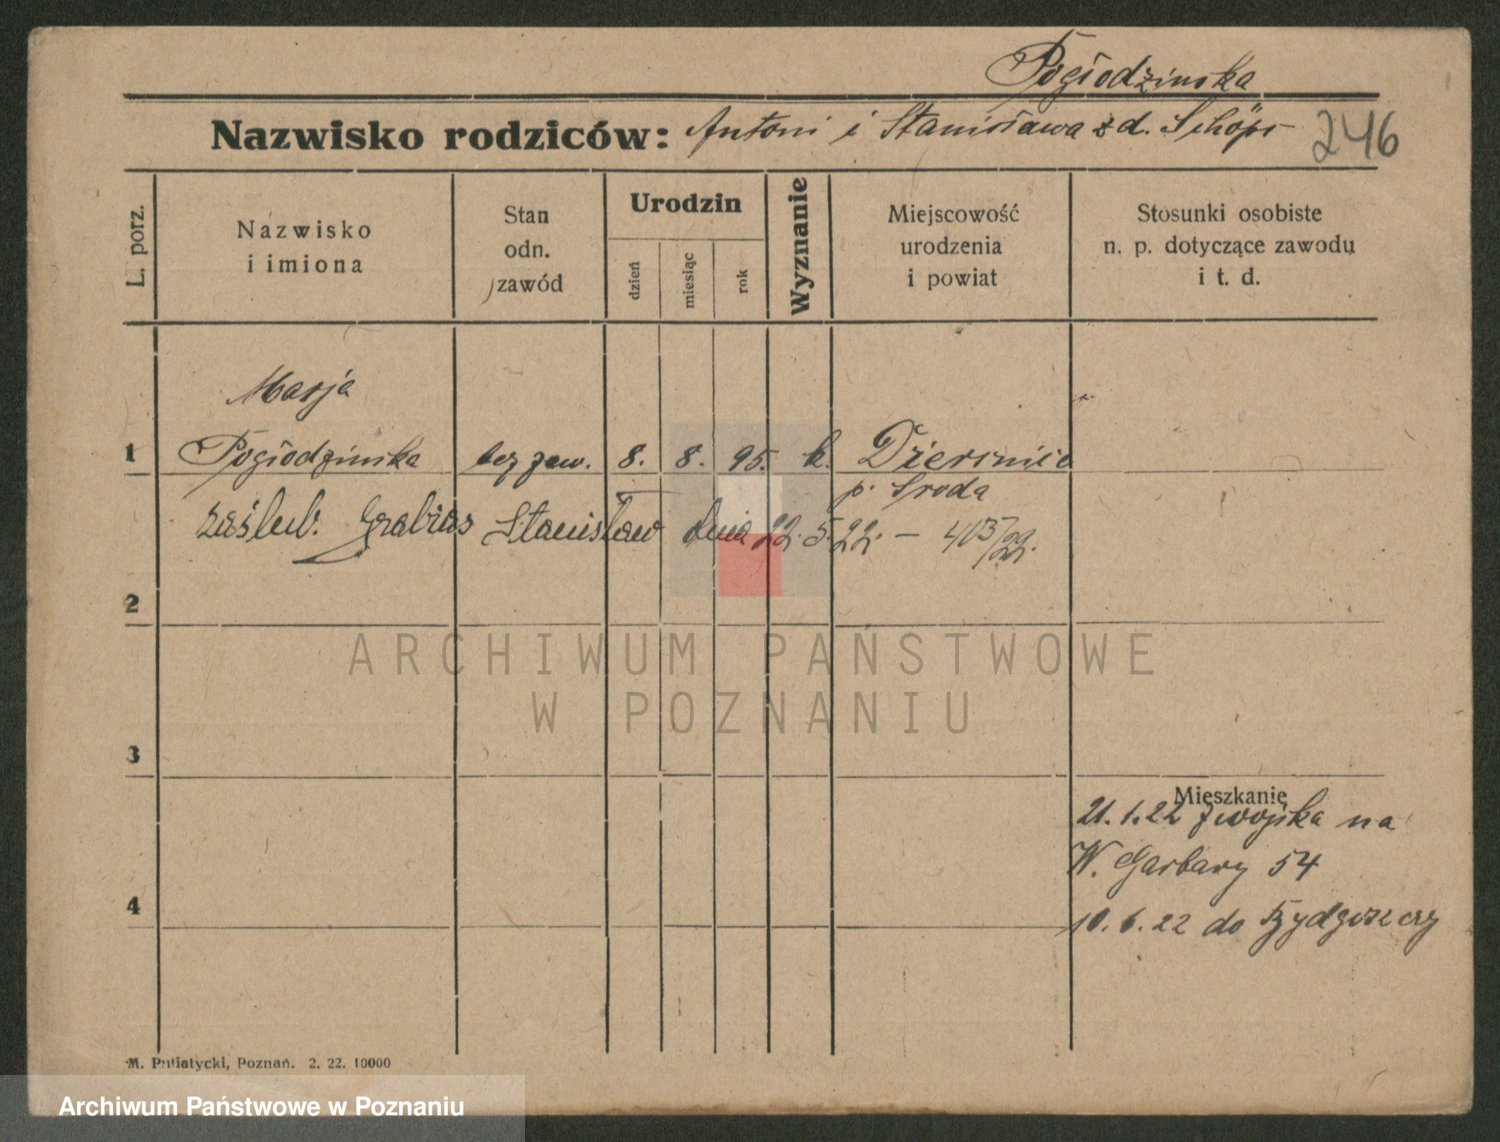 Pogłodzinska
Nazwisko rodziców: Antoni i Stanisława z d. Schöps
246
L. porz.
Nazwisko
i imiona
Stan
odn.
zawód
Urodzin
dzień
miesiąc
rok
Wyznanie
Miejscowość
urodzenia
i powiat
Stosunki osobiste
n. p. dotyczące zawodu
i t. d.
Marja
1 Pogłodzinska bez zaw. 8. 8. 95. k. Dzierznica
p. Sroda
zaślub. Grabias Stanisław dnia 22. 5. 22. — 403/22.
2
3
4
Mieszkanie
21. 1. 22 z wojska na
W. Garbary 54
10. 6. 22 do Bydgoszczy
ARCHIWUM PAŃSTWOWE
W POZNANIU
M. Putiatycki, Poznań. 2. 22. 10000
Archiwum Państwowe w Poznaniu